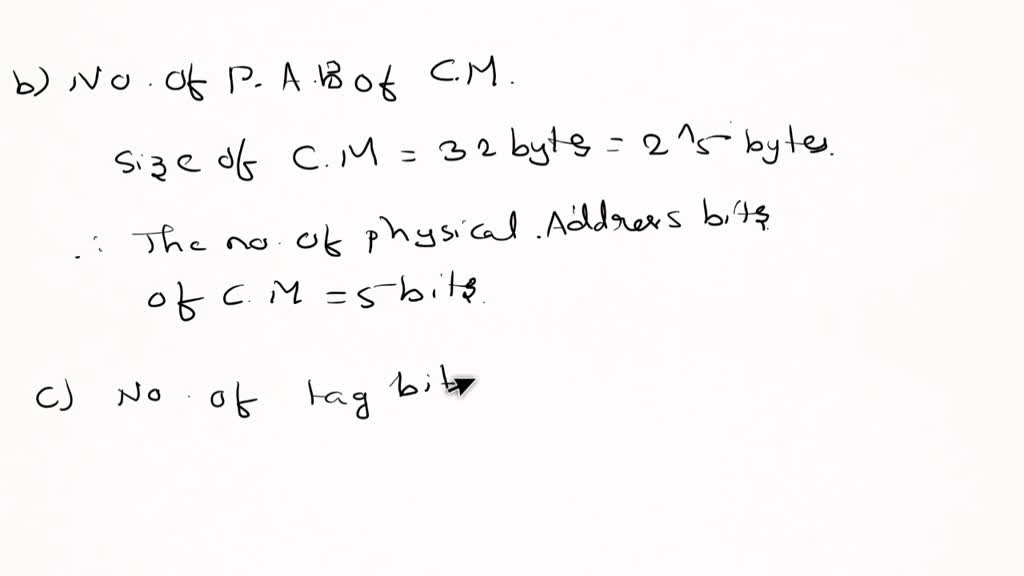 b) No. of P.A.B of C.M.
Size of C.M = 32 bytes = 2^5 bytes.
∴ The no. of physical Address bits
of C.M = 5 bits.
c) No. of tag bit